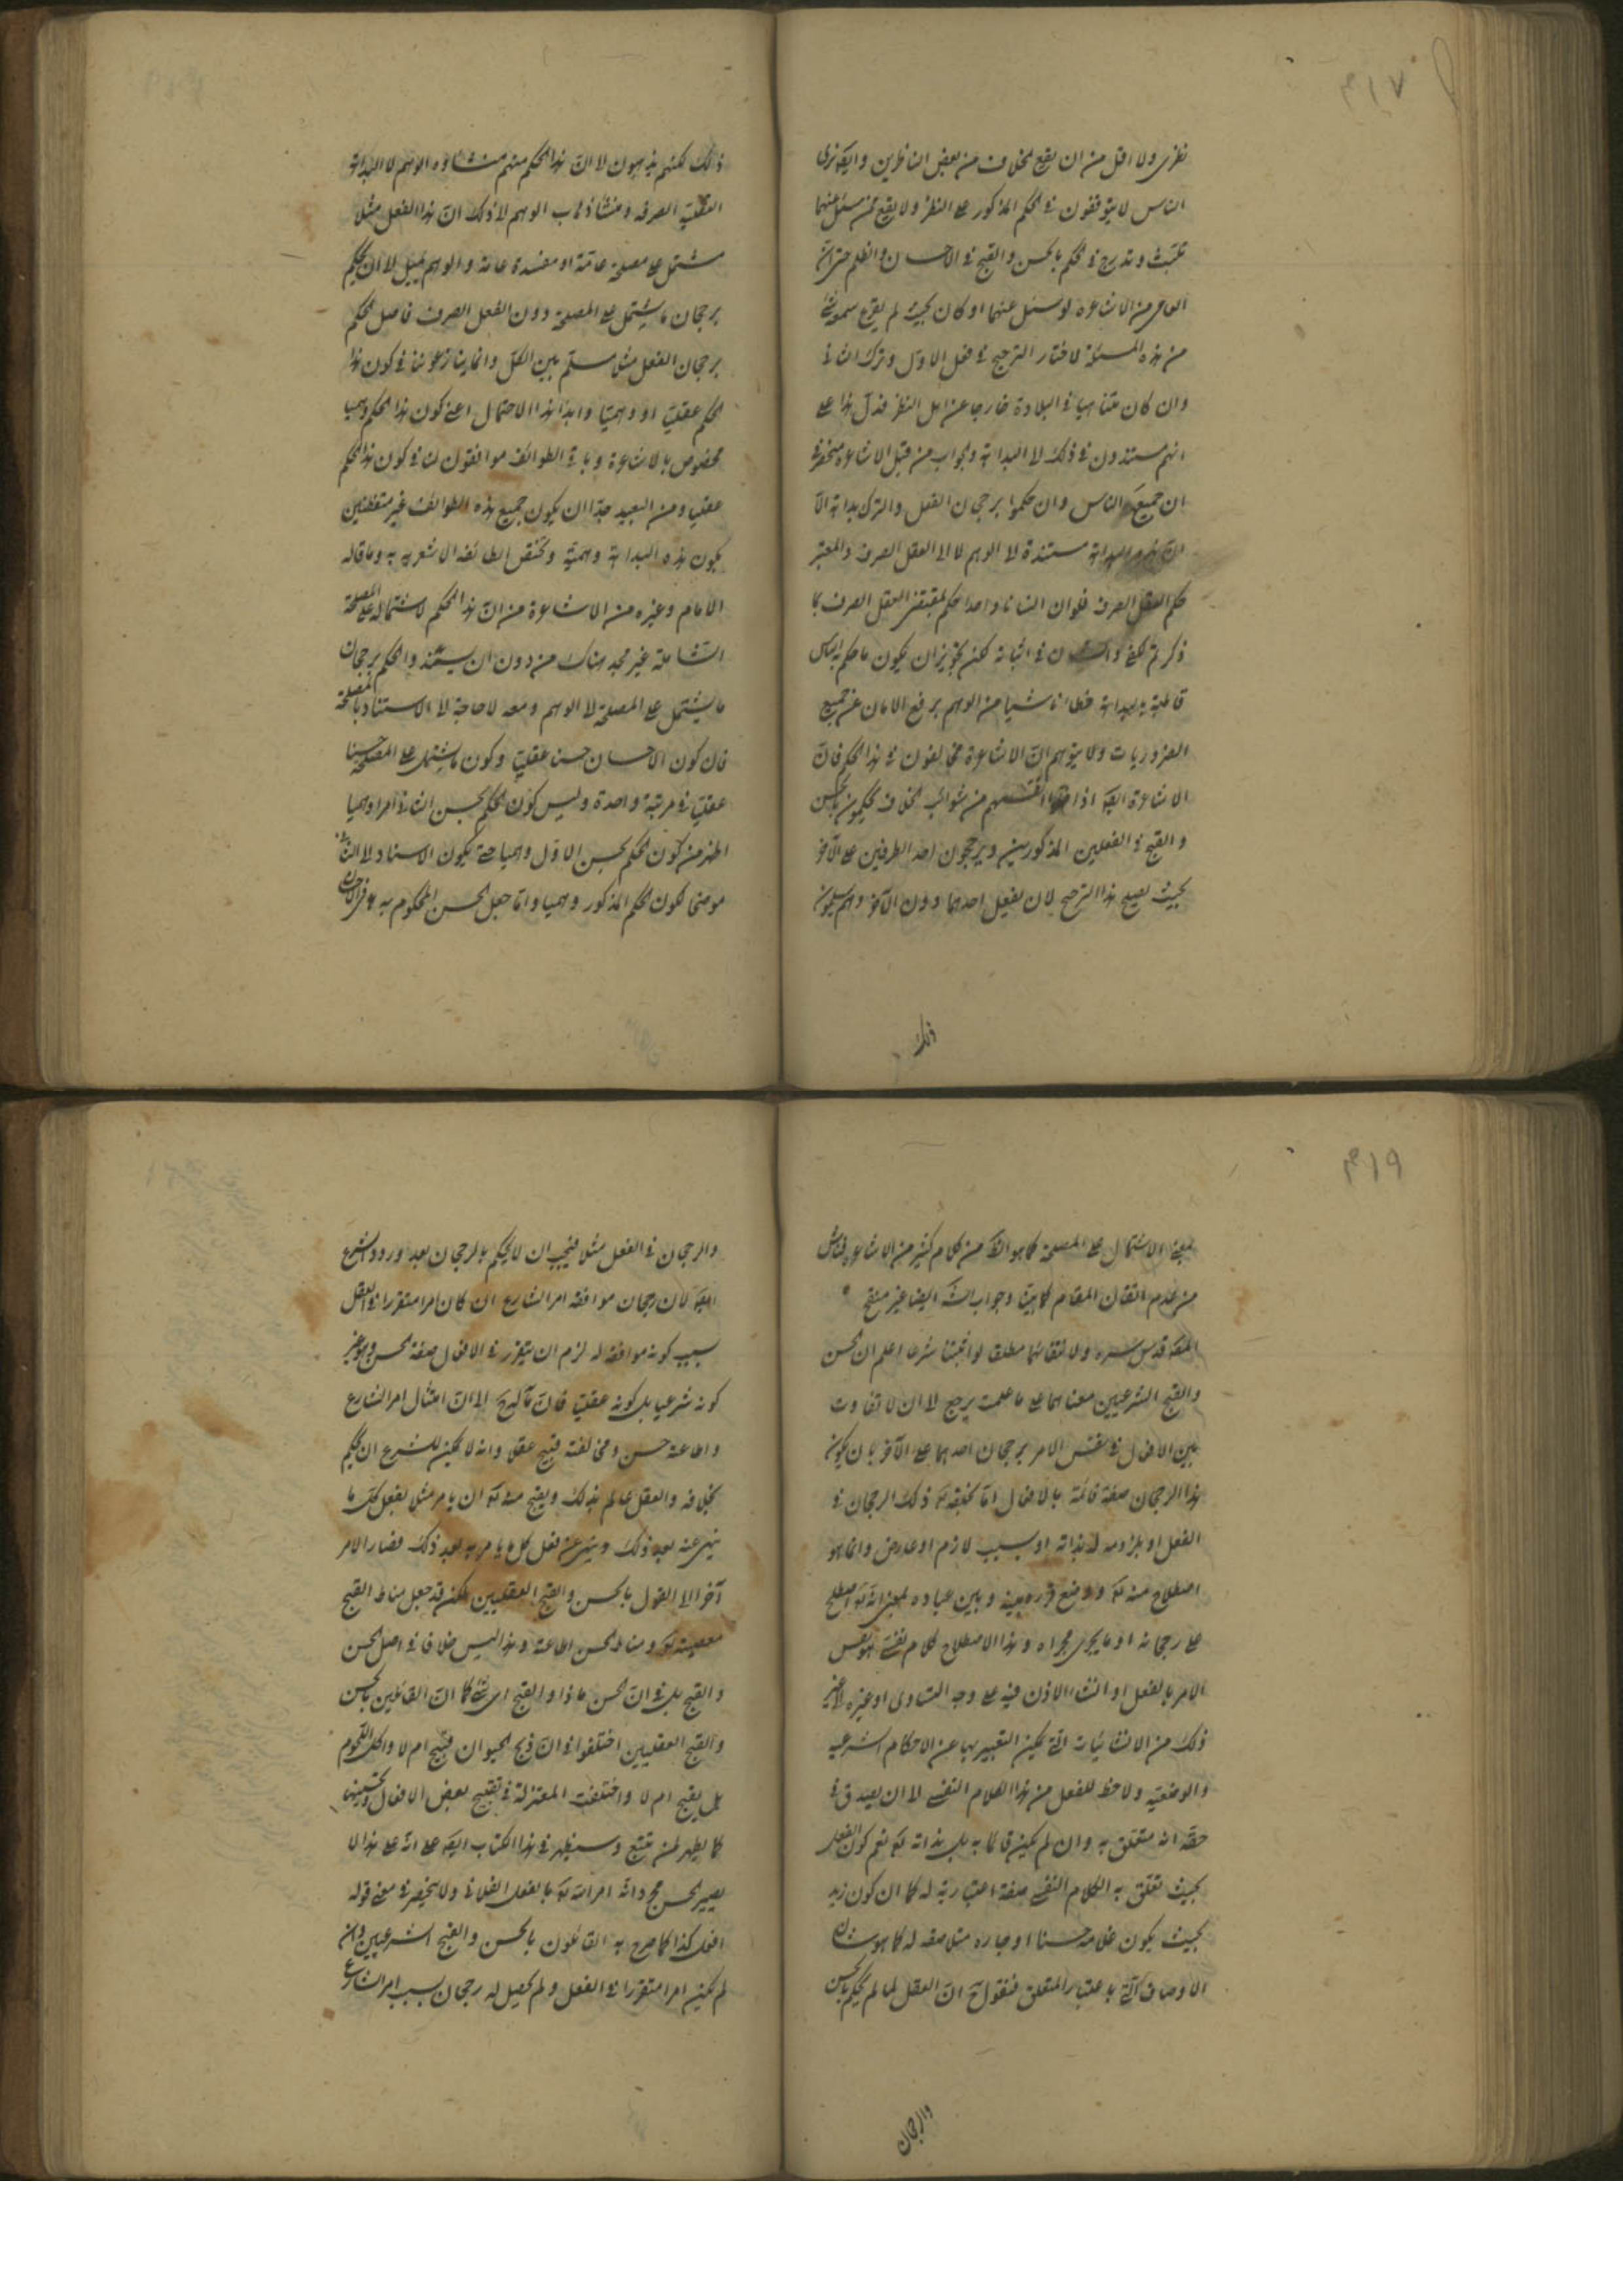 ٣١٧
نظری ولا اقل من ان یقع الخلاف من بعض الناظرین وایضا نری
الناس لا یتوقفون فی الحکم المذکور علی النظر ولا یقع ممن سئل عنهما
تلبث وتدرج فی الحکم بالحسن والقبح فی الاحسان والظلم حتی ان
العامی من الاشاعره لو سئل عنهما او کان بحیث لم یقرع سمعه شئ
من هذه المسئلة لاختار الترجیح فی فعل الاول وترک الثانی
وان کان متناهیا فی البلادة خارجا عن اهل النظر فدل هذا علی
انهم مستندون فی ذلک الی البداهة والجواب من قبل الاشاعره
ان جمیع الناس وان حکموا برجحان الفعل والترک بداهة الا
ان هذه البداهة مستندة الی الوهم لا الی العقل الصرف والمعتبر
حکم العقل الصرف فلو ان انسانا واحدا حکم بمقتضی العقل الصرف بما
ذکرتم لکفی فی اثباته لکن تجویز ان یکون ما حکم به الناس
قاطبة بدیهة خطاء ناشیا من الوهم یرفع الامان عن جمیع
الضروریات ولا یتوهم ان الاشاعرة مخالفون فی هذا الحکم فان
الاشاعرة ایضا اذا انفسهم من شوائب الخلاف یحکمون بالحسن
والقبح فی الفعلین المذکورین ویرجحون احد الطرفین علی الآخر
بحیث یصیح هذا الترجیح لان یفعل احدهما دون الآخر وهم یسلمون
ذلک
ذلک لکنهم یذهبون الی ان هذا الحکم منهم منشاؤه الوهم لا البداهة
العقلیة الصرفة ومنشاء ذهاب الوهم الی ذلک ان هذا الفعل مثلا
مشتمل علی مصلحة عامة او مفسدة عامة والوهم یمیل الی ان یحکم
برجحان ما یشتمل علی المصلحة دون الفعل الصرف فاصل الحکم
برجحان الفعل مثلا مسلم بین الکل وانما ینازعوننا فی کون هذا
الحکم عقلیا او وهمیا وابداء هذا الاحتمال اعنی کون هذا الحکم وهمیا
مخصوص بالاشاعرة وباقی الطوائف موافقون لنا فی کون هذا الحکم
عقلیا ومن البعید جدا ان یکون جمیع هذه الطوائف غیر متفطنین
بکون هذه البداهة وهمیة وتختص الطائفة الاشعریه به وما قاله
الامام وغیره من الاشاعرة من ان هذا الحکم لاشتماله علی المصلحة
الشاملة غیر مجد هناک من دون ان یستند والحکم برجحان
ما یشتمل علی المصلحة الی الوهم ومعه لا حاجة الی الاستناد بالمصلحة
فان کون الاحسان حسنا عقلیا وکون ما یشتمل علی المصلحة حسنا
عقلیا فی مرتبة واحدة ولیس کون الحکم بحسن الثانی امرا وهمیا
اظهر من کون الحکم بحسن الاول وهمیا حتی یکون الاسناد الی الثانی
موضحا لکون الحکم المذکور وهمیا واما جعل الحسن المحکوم به فی الاحسان
٣١٩
بمعنی الاشتمال علی المصلحة کما هو الظ من کلام کثیر من الاشاعره فناش
من عدم اتقان المقام کما بینا وجواب الشه ایضا غیر منقح
المصه قدس سره ولانتفائهما مطلقا لو اثبتا شرعا اعلم ان الحسن
والقبح الشرعیین معناهما علی ما علمت یرجع الی ان لا تفاوت
بین الافعال فی نفس الامر برجحان احدهما علی الآخر بان یکون
هذا الرجحان صفة قائمة بالافعال اما بخلقه تع ذلک الرجحان فی
الفعل او بلزومه له بذاته او بسبب لازم او عارض وانما هو
اصطلاح منه تع ووضع قرره بینه وبین عباده بمعنی انه تع اصطلح
علی رجحانه او ما یجری مجراه وهذا الاصطلاح کلام نفسی هو نفس
الامر بالفعل او انشاء الاذن فیه علی وجه التساوی او غیره الی غیر
ذلک من الانشائیات التی یمکن التعبیر بها عن الاحکام الشرعیه
والوضعیه ولا حظ للفعل من هذا الکلام النفسی الا ان یصدق فی
حقه انه متعلق به وان لم یکن قائما به بل بذاته تع نعم کون الفعل
بحیث تعلق به الکلام النفسی صفة اعتباریة له کما ان کون زید
بحیث یکون غلامه حسنا او جاره مثلا صفه له کما هو شان
الاوصاف التی باعتبار المتعلق فنقول ح ان العقل لما لم یحکم بالحسن
والرجحان
والرجحان فی الفعل مثلا فیجب ان لا یحکم بالرجحان بعد ورود الشرع
ایضا لان رجحان موافقة امر الشارع ان کان امرا متقررا فی العقل
بسبب کونه موافقة له لزم ان یتقرر فی الافعال صفة الحسن وهو غیر
کونه شرعیا بل کونه عقلیا فان مآله ح الی ان امتثال امر الشارع
واطاعته حسن ومخالفته قبیح عقلا وانه لا یمکن للشرع ان یحکم
بخلافه والعقل عالم بذلک ویقبح منه تع ان یامر مثلا بفعل کل ما
ینهی عنه بعد ذلک وینهی عن فعل کل ما یامر به بعد ذلک فصار الامر
آخرا الی القول بالحسن والقبح العقلیین لکن قد جعل مناط القبح
معصیته تع ومناط الحسن اطاعته وهذا لیس خلافا فی اصل الحسن
والقبح بل فی ان الحسن ماذا والقبح ای شئ کما ان القائلین بالحسن
والقبح العقلیین اختلفوا فی ان ذبح الحیوان قبیح ام لا واکل اللحوم
هل یقبح ام لا واختلفت المعتزلة فی تقبیح بعض الافعال وتحسینها
کما یظهر لمن تتبع وسیظهر فی هذا الکتاب ایضا علی انه علی هذا لا
یصیر الحسن مجرد انه امر الله تع بالفعل الفلانی ولا ینحصر فی معنی قوله
افعل کذا کما صرح به القائلون بالحسن والقبح الشرعیین وان
لم یکن امرا متقررا فی الفعل ولم یحصل له رجحان بسبب امر الشارع